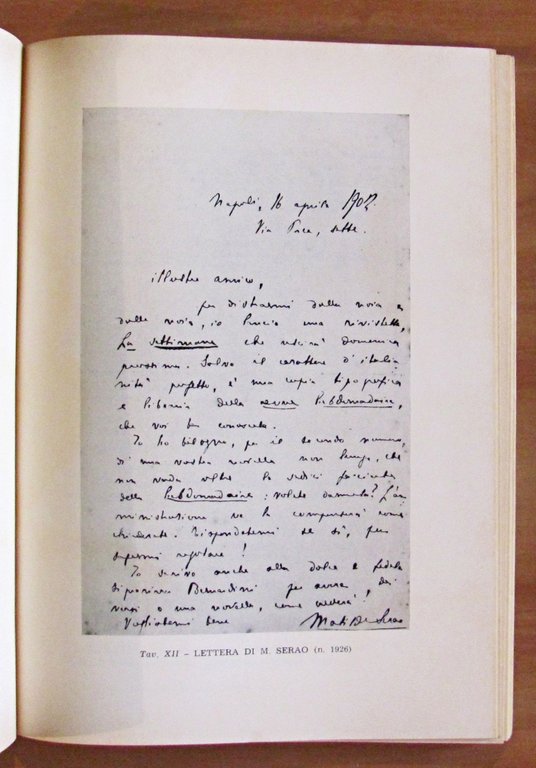 Napoli, 16 aprile 1902.
Via Pace, sette.
illustre amico,
per distrarmi dalla noia e
dalle noie, io faccio una rivistella,
La Settimana che uscirà domenica
prossima. Salvo il carattere d'italia
nità perfetto, è una copia tipografica
e libraria della revue hebdomadaire,
che voi ben conoscete.
Io ho bisogno, per il secondo numero,
di una vostra novella non lunga, che
non vada oltre le sedici facciate
della hebdomadaire: volete darmela? L'am
ministrazione ve la compenserà come
chiederete. Rispondetemi se sì, per
sapermi regolare!
Io scrivo anche alla dolce e fedele
Bernardini per avere, dei
versi o una novella, come vedrà!
Vogliatemi bene
Matilde Serao
Tav. XII - LETTERA DI M. SERAO (n. 1926)